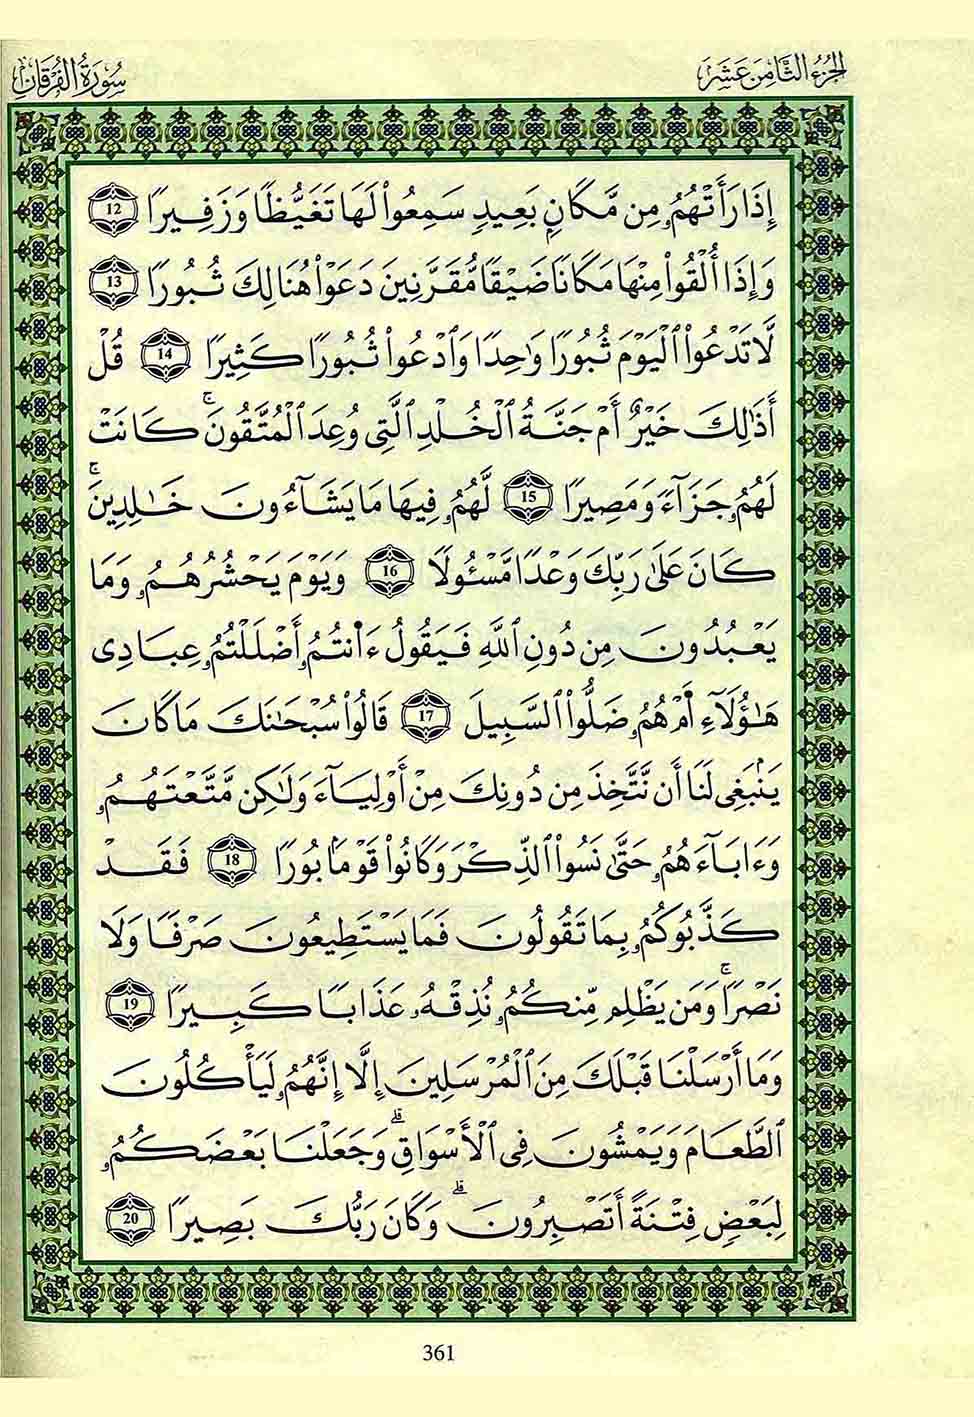 الجزء الثامن عشر
سورة الفرقان
إِذَا رَأَتْهُمُۥ مِن مَّكَانٍۭ بَعِيدٍ سَمِعُوا۟ لَهَا تَغَيُّظًا وَزَفِيرًا 12
وَإِذَا أُلْقُوا۟ مِنْهَا مَكَانًا ضَيْقًا مُّقَرَّنِينَ دَعَوْا۟ هُنَالِكَ ثُبُورًا 13
لَّا تَدْعُوا۟ ٱلْيَوْمَ ثُبُورًا وَٰحِدًا وَٱدْعُوا۟ ثُبُورًا كَثِيرًا 14 قُلْ
أَذَٰلِكَ خَيْرٌ أَمْ جَنَّةُ ٱلْخُلْدِ ٱلَّتِى وُعِدَ ٱلْمُتَّقُونَ ۚ كَانَتْ
لَهُمُۥ جَزَآءً وَمَصِيرًا 15 لَّهُمُۥ فِيهَا مَا يَشَآءُونَ خَٰلِدِينَ ۚ
كَانَ عَلَىٰ رَبِّكَ وَعْدًا مَّسْـُٔولًا 16 وَيَوْمَ يَحْشُرُهُمُۥ وَمَا
يَعْبُدُونَ مِن دُونِ ٱللَّهِ فَيَقُولُ ءَا۬نتُمُۥ أَضْلَلْتُمُۥ عِبَادِى
هَٰٓؤُلَآءِ أَمْ هُمُۥ ضَلُّوا۟ ٱلسَّبِيلَ 17 قَالُوا۟ سُبْحَٰنَكَ مَا كَانَ
يَنۢبَغِى لَنَا أَن نَّتَّخِذَ مِن دُونِكَ مِنْ أَوْلِيَآءَ وَلَٰكِن مَّتَّعْتَهُمُۥ
وَءَابَآءَهُمُۥ حَتَّىٰ نَسُوا۟ ٱلذِّكْرَ وَكَانُوا۟ قَوْمًۢا بُورًا 18 فَقَدْ
كَذَّبُوكُمُۥ بِمَا تَقُولُونَ فَمَا يَسْتَطِيعُونَ صَرْفًا وَلَا
نَصْرًا ۚ وَمَن يَظْلِم مِّنكُمُۥ نُذِقْهُۥ عَذَابًا كَبِيرًا 19
وَمَا أَرْسَلْنَا قَبْلَكَ مِنَ ٱلْمُرْسَلِينَ إِلَّا إِنَّهُمُۥ لَيَأْكُلُونَ
ٱلطَّعَامَ وَيَمْشُونَ فِى ٱلْأَسْوَاقِ ۗ وَجَعَلْنَا بَعْضَكُمُۥ
لِبَعْضٍ فِتْنَةً أَتَصْبِرُونَ ۗ وَكَانَ رَبُّكَ بَصِيرًا 20
361